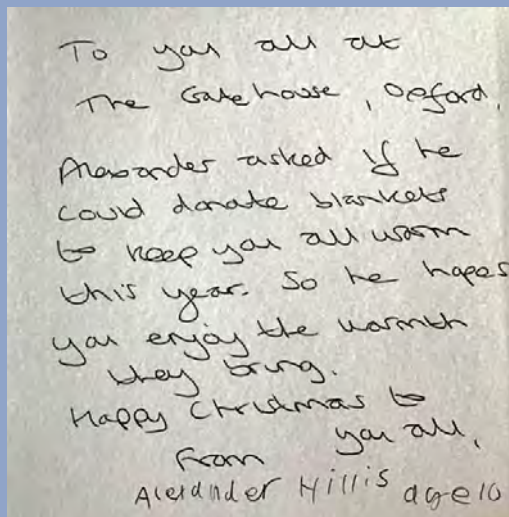 To you all at
The Gatehouse, Oxford,
Alexander asked if he
could donate blankets
to keep you all warm
this year. So he hopes
you enjoy the warmth
they bring.
Happy Christmas to
you all,
From
Alexander Hillis age 10